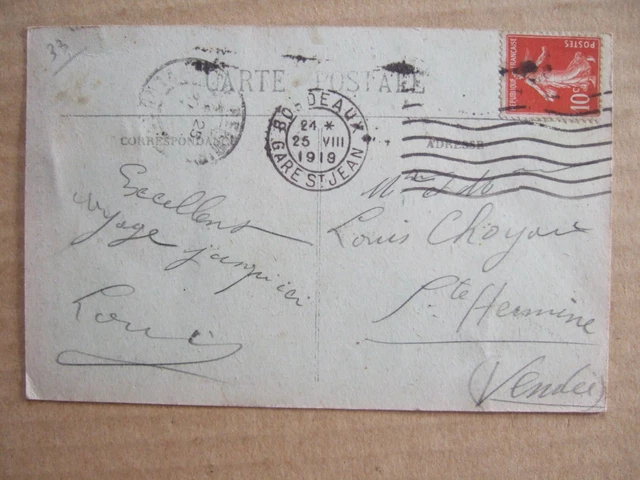 33
CARTE POSTALE
CORRESPONDANCE
ADRESSE
POSTES
REPUBLIQUE FRANÇAISE
10c
BORDEAUX
24 *
25 VIII
1919
GARE ST JEAN
25
Excellent
voyage jusqu'ici
Loui
Mr & Mme
Louis Choyau
Ste Hermine
(Vendée)